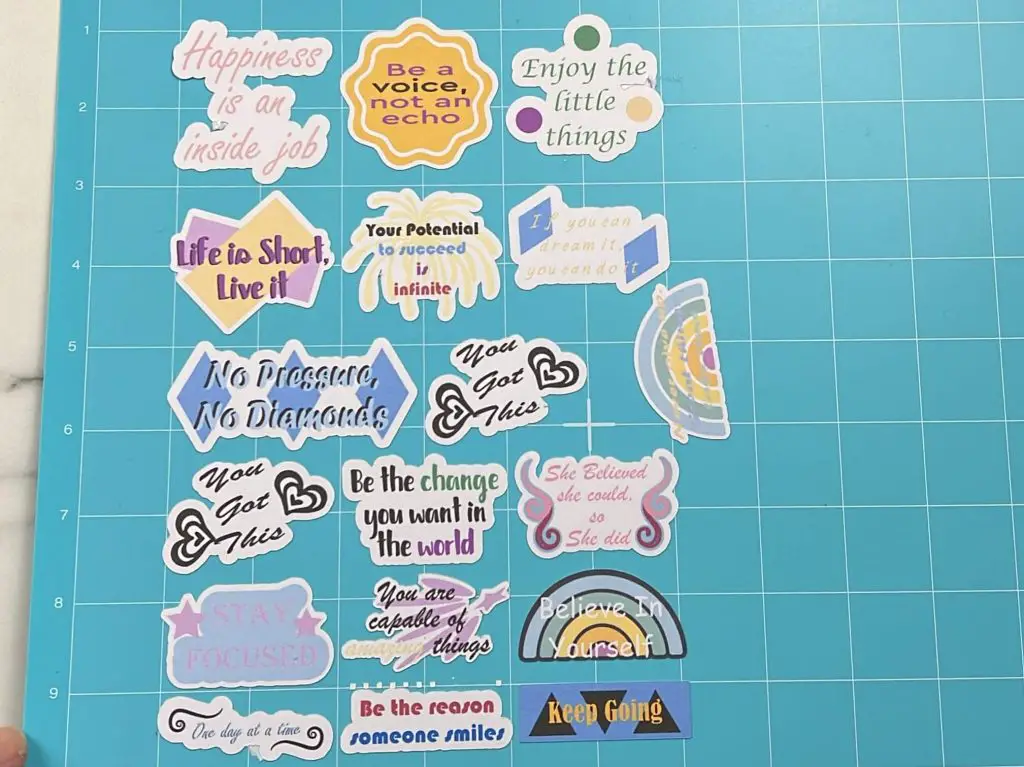 1
Happiness
is an
inside job
Be a
voice,
not an
echo
Enjoy the
little
things
2
3
Life is Short,
Live it
Your Potential
to succeed
is
infinite
If you can
dream it,
you can do it
4
5
No Pressure,
No Diamonds
You
Got
This
6
You
Got
This
Be the change
you want in
the world
She Believed
she could,
so
She did
7
8
STAY
FOCUSED
You are
capable of
amazing things
Believe In
Yourself
9
One day at a time
Be the reason
someone smiles
Keep Going